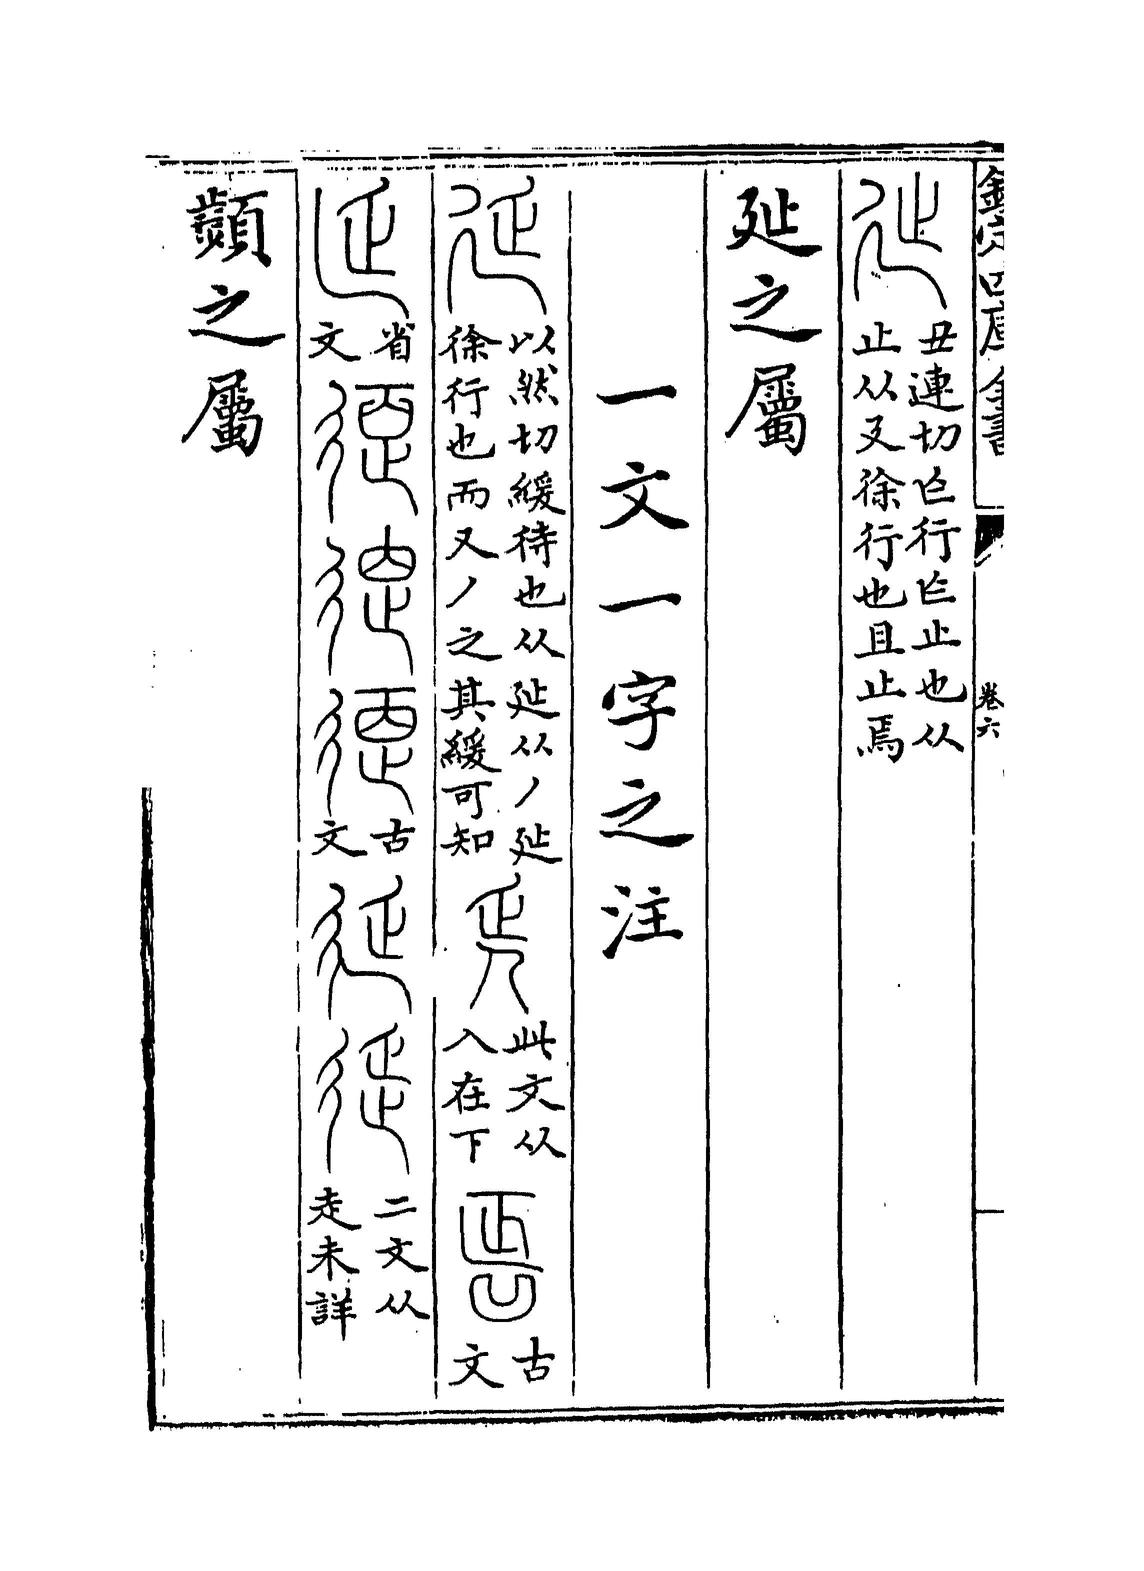 欽定四庫全書
卷六
丑連切乍行乍止也从
止从廴徐行也且止焉
㢟之屬
一文一字之注
以然切緩待也从㢟从丿㢟
徐行也而又丿之其緩可知
此文从
人在下
古
文
省
文
古
文
二文从
走未詳
顰之屬